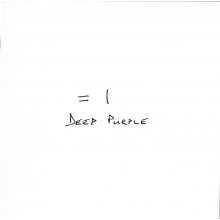 = 1
DEEP PURPLE